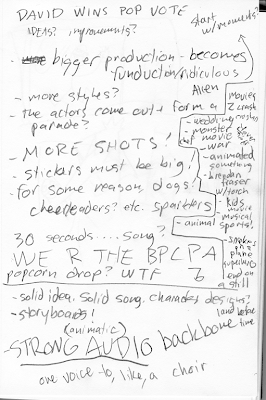 DAVID WINS POP VOTE
IDEAS? improvements?
start w/moments?
- bigger production - becomes
fun
ridiculous
- more styles?
- the actors come out & form a
parade?
- MORE SHOTS!
- stickers must be big!
- for some reason, dogs?
cheerleaders? etc. sparklers
Alien
movies
2 crash
- wedding crashers
- monster
movie
- war
- animated
something
- brendan
fraser
w/torch
- kids
music
musical
sports!
- animal
- snakes
on a
plane
superhero
end on
a still
30 seconds....song?
WE R THE BPCPA
popcorn drop? WTF
- solid idea. Solid song. character designs?
- storyboards!
(animatic)
land before
time
- STRONG AUDIO backbone
one voice to, like, a choir